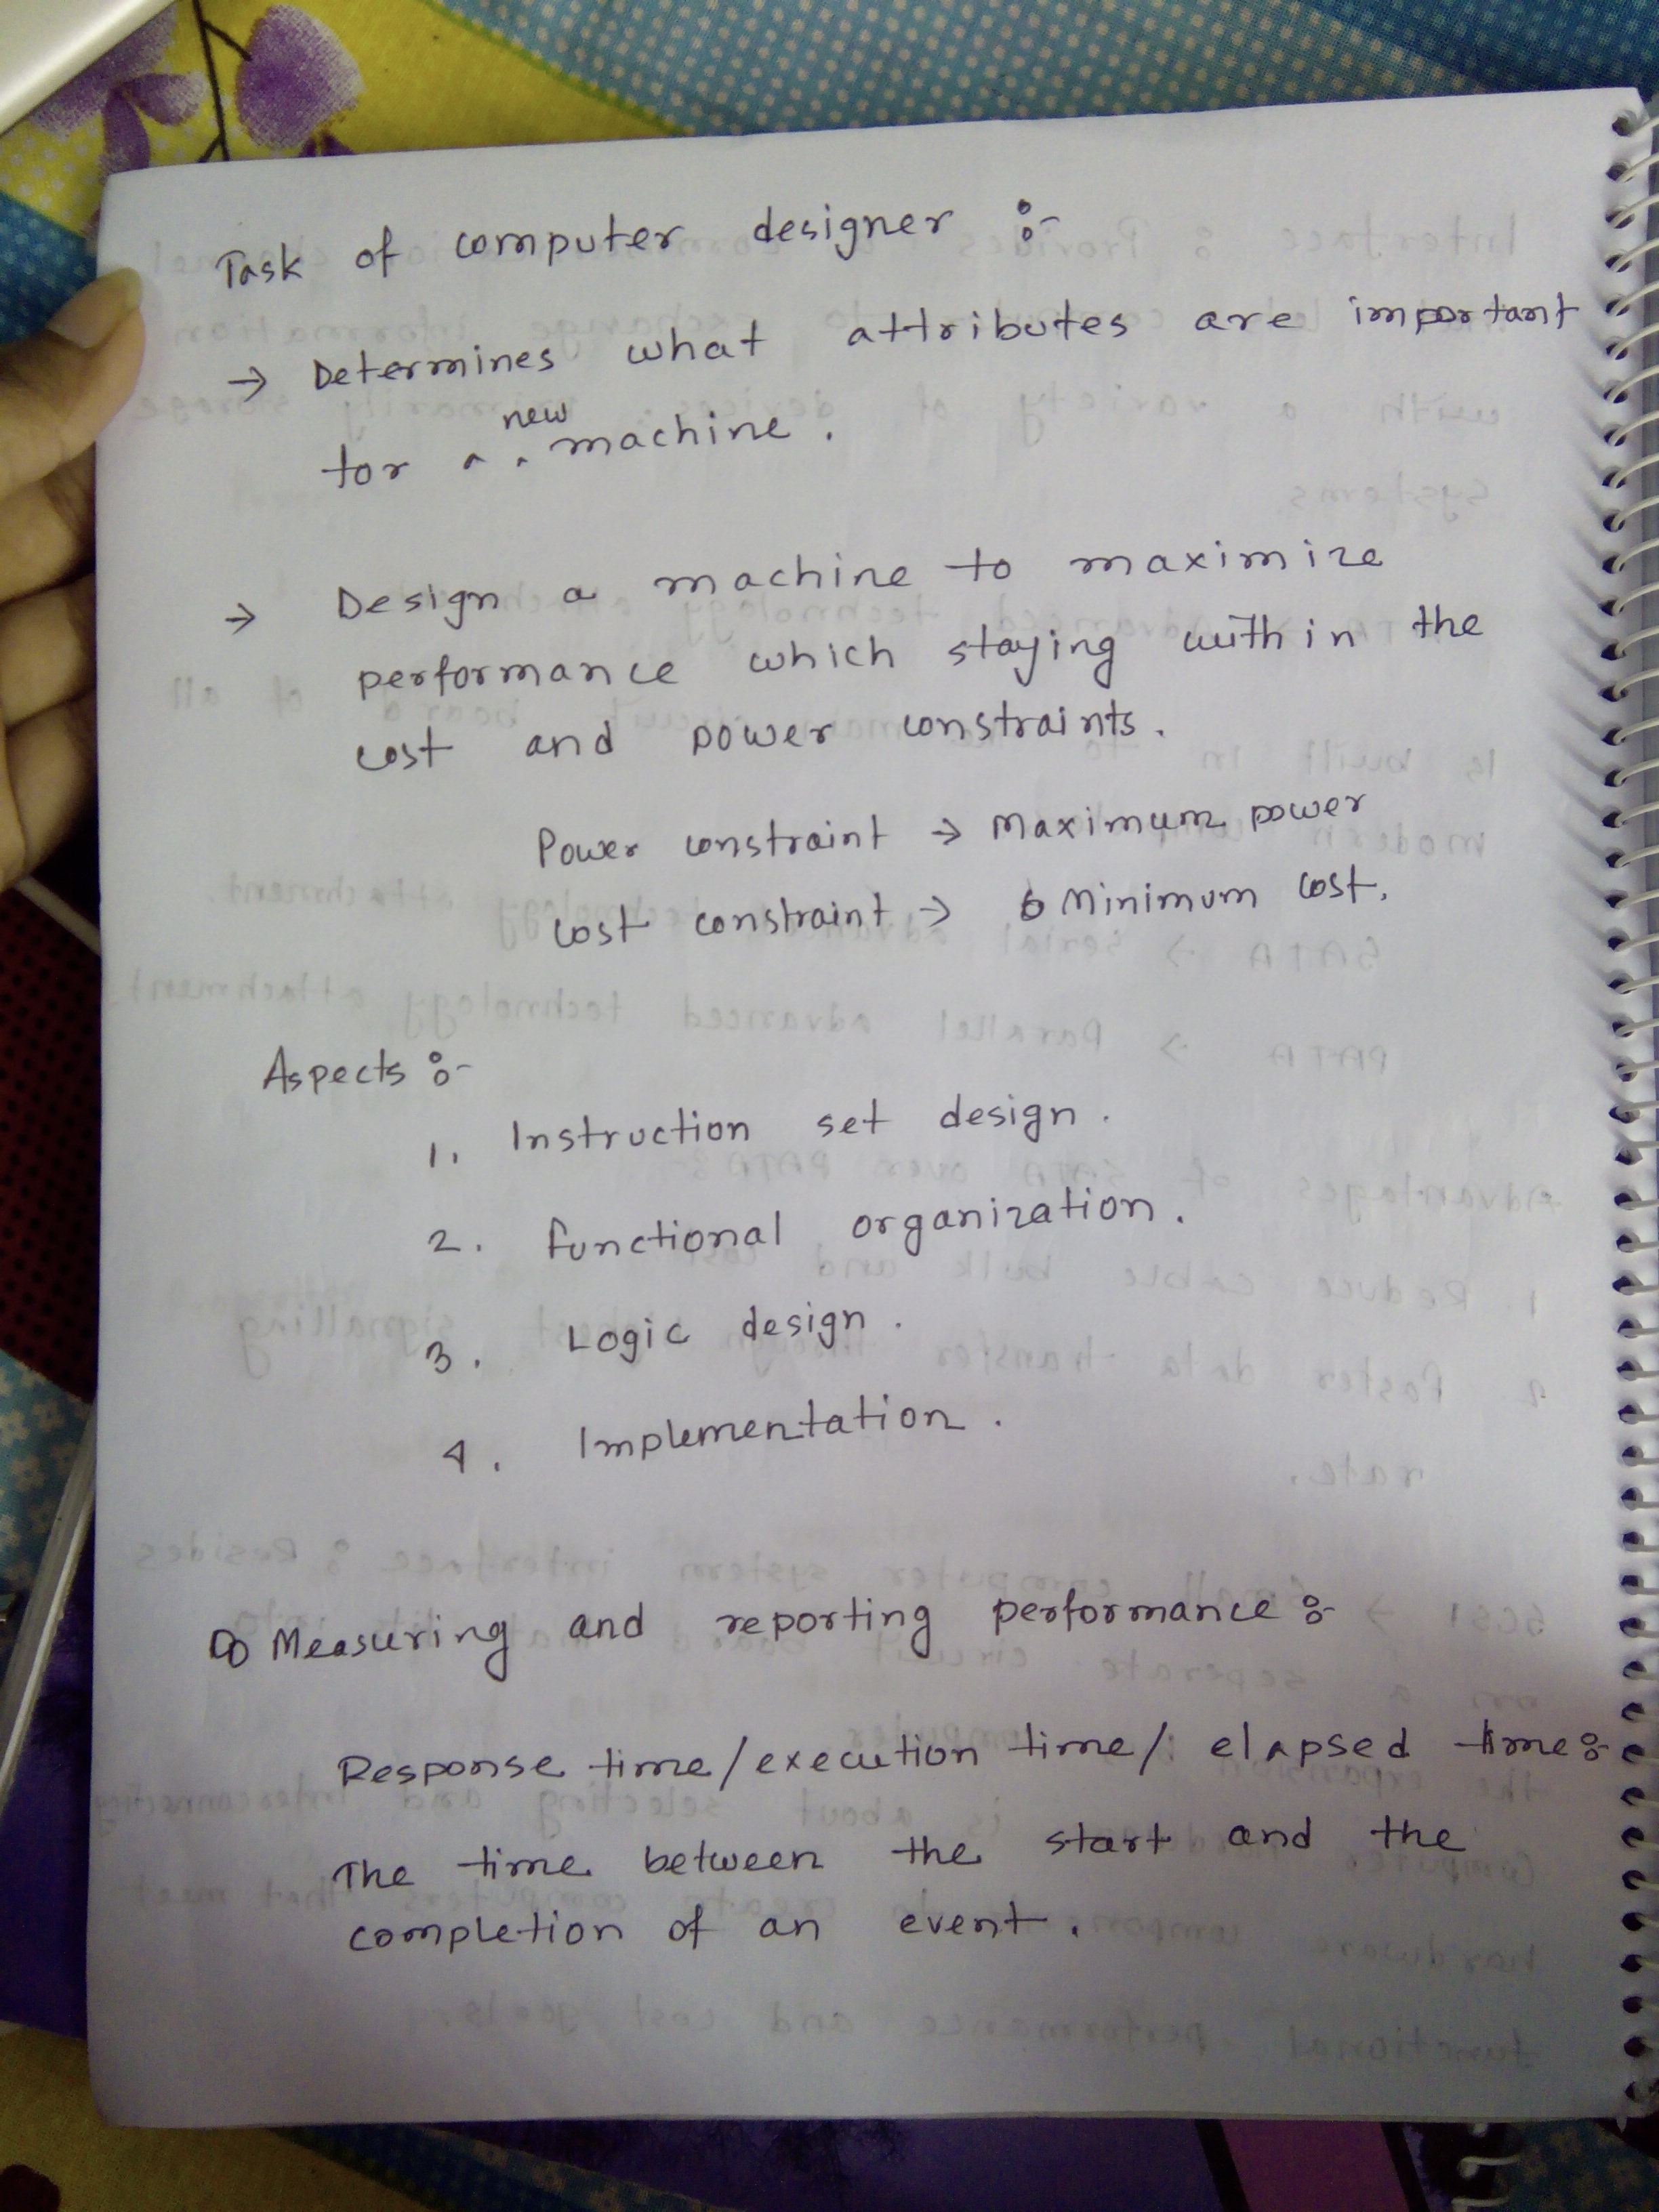 Task of computer designer :-
→ Determines what attributes are important
new
for a ^ machine.
→ Design a machine to maximize
performance which staying within the
cost and power constraints.
Power constraint → Maximum power
cost constraint → Minimum cost.
Aspects :-
1. Instruction set design.
2. Functional organization.
3. Logic design.
4. Implementation.
Measuring and reporting performance :-
Response time/execution time/ elapsed time :-
The time between the start and the
completion of an event.